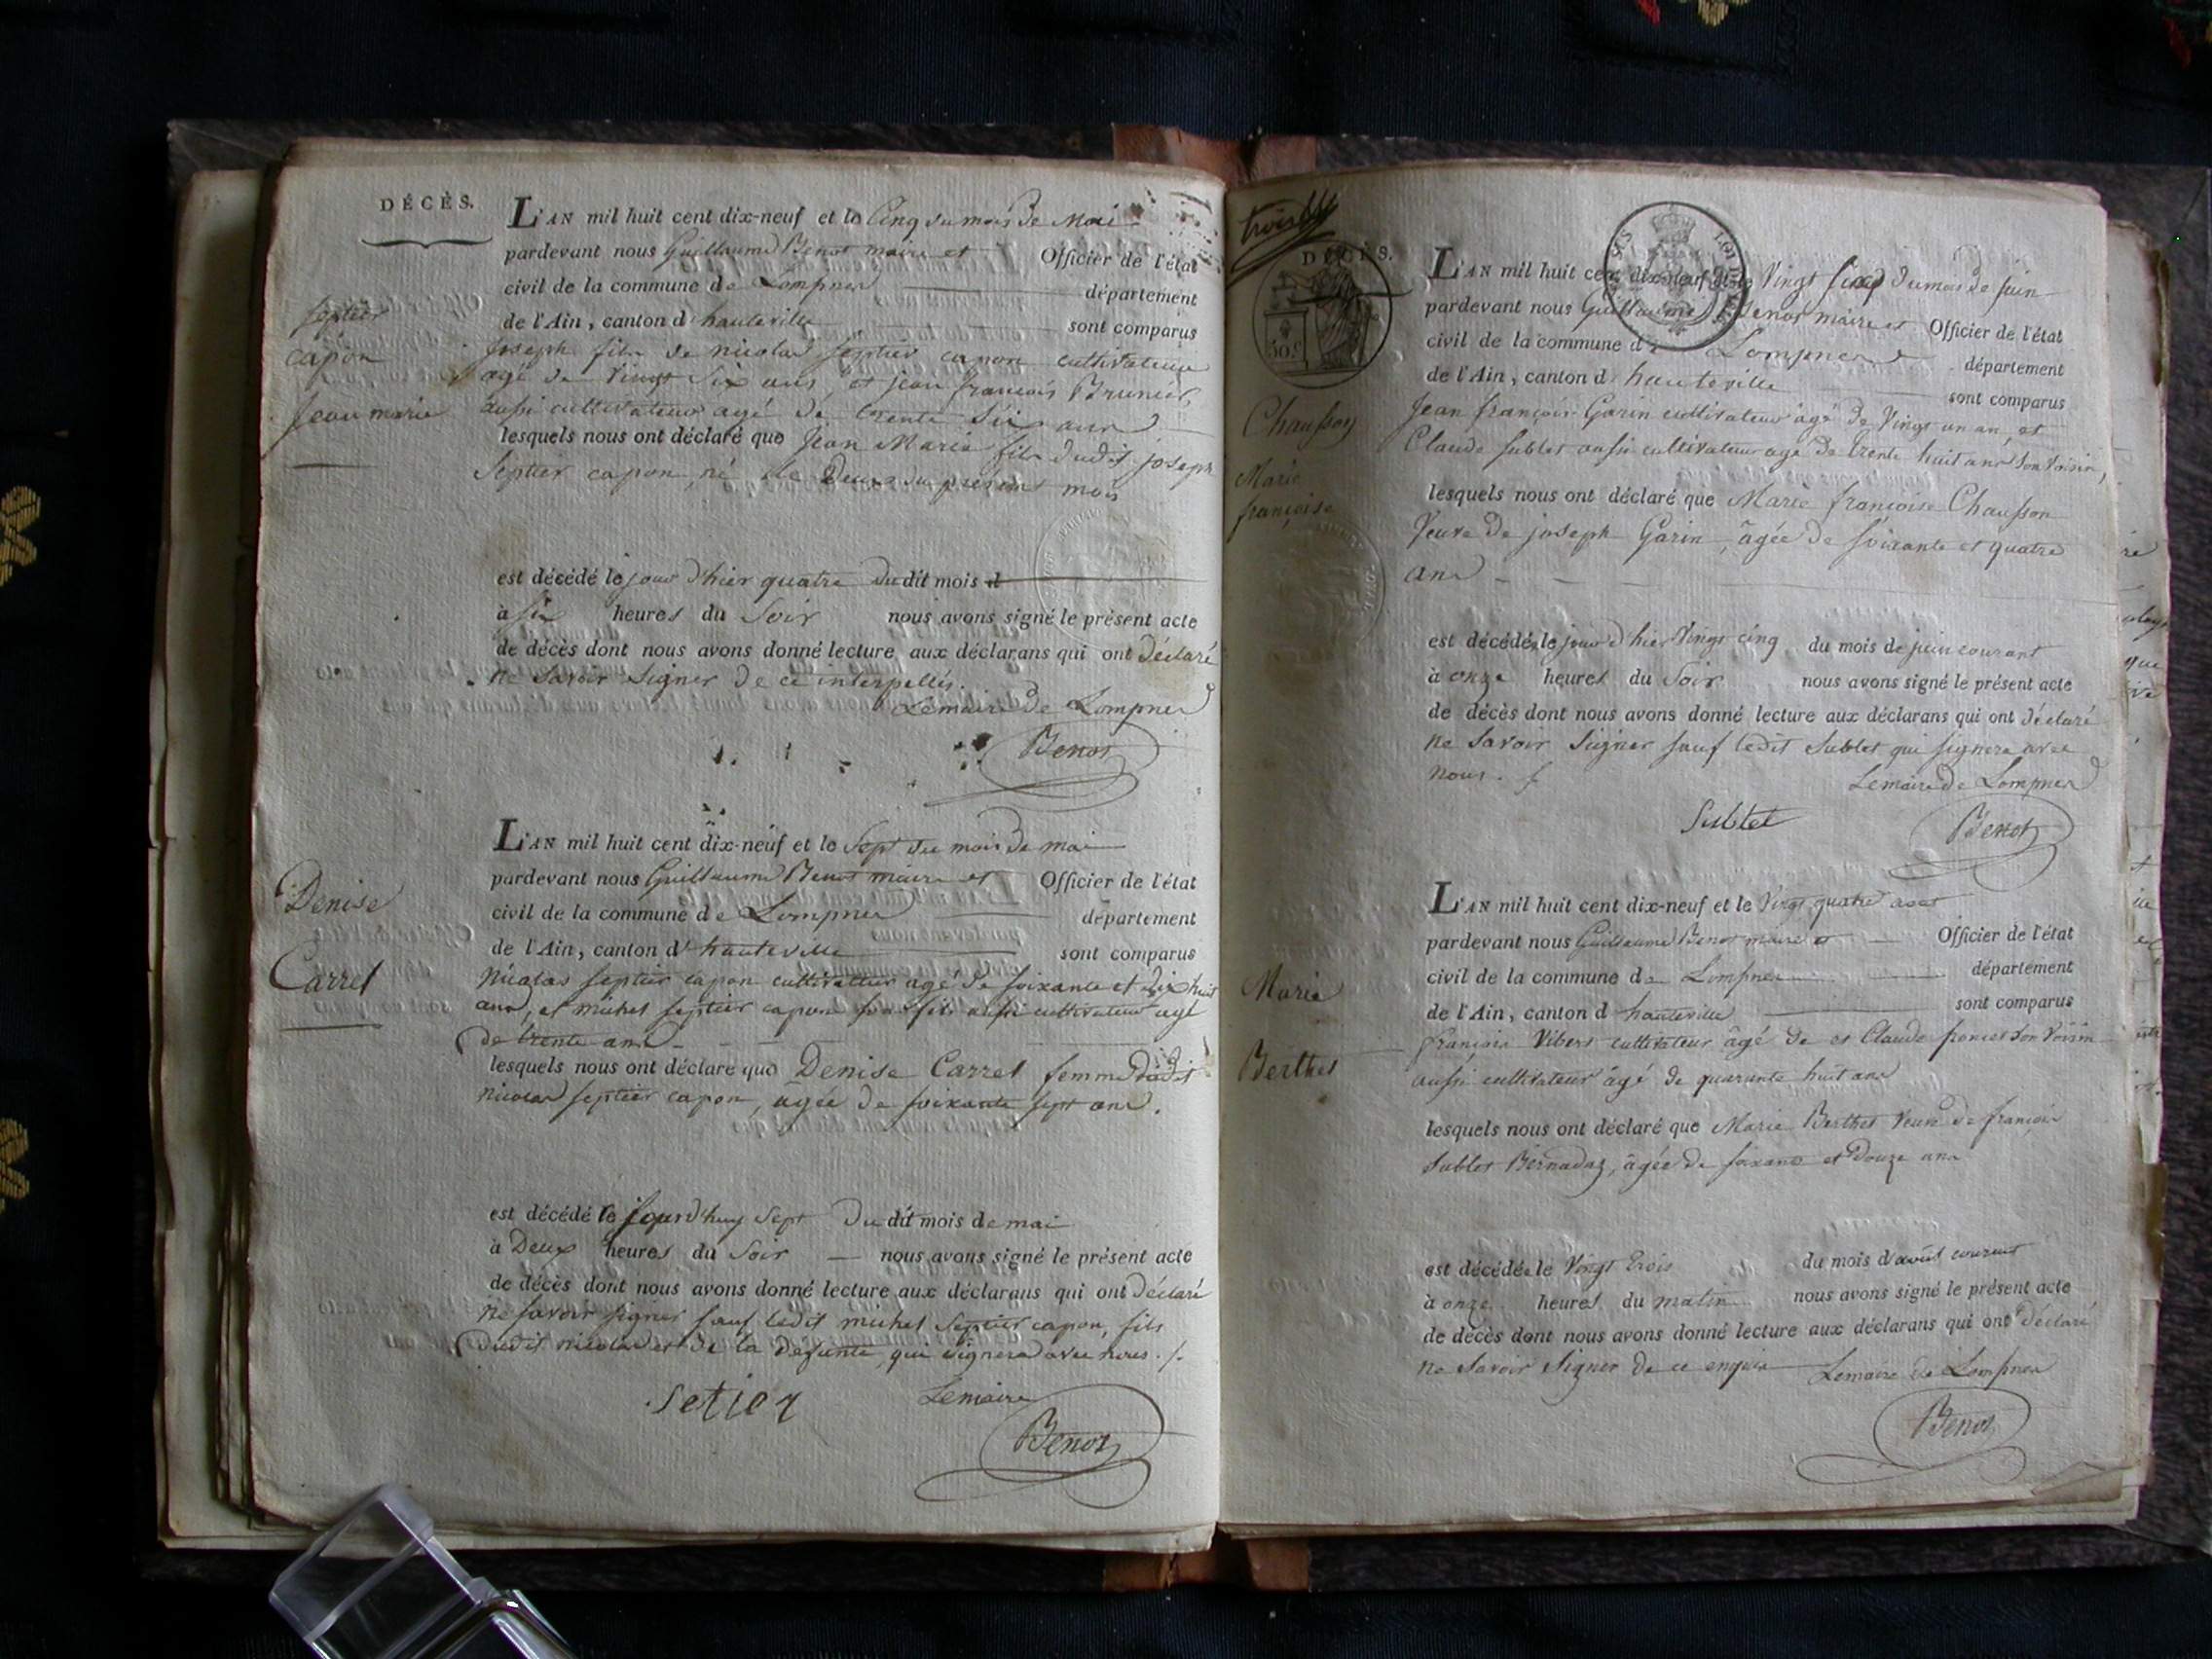 DÉCÈS.
L'AN mil huit cent dix-neuf et le Cinq du mois de Mai
pardevant nous Guillaume Benot maire et Officier de l'état
civil de la commune de Lompner département
de l'Ain, canton d hauteville sont comparus
septier
capon
Jean marie
joseph fils de nicolas septier capon cultivateur
agé de vingt six ans et jean françois Brunier
aussi cultivateur agé de trente six ans
lesquels nous ont déclaré que Jean Marie fils dudit joseph
Septier capon, né le Deux du présent mois
est décédé le jour d'hier quatre du dit mois d
à six heures du Soir nous avons signé le présent acte
de décès dont nous avons donné lecture aux déclarans qui ont déclaré
ne savoir signer de ce interpellés.
Lemaire de Lompner
Benot
L'AN mil huit cent dix-neuf et le Sept du mois de mai
pardevant nous Guillaume Benot maire et Officier de l'état
civil de la commune de Lompner département
de l'Ain, canton d' hauteville sont comparus
Denise
Carret
Nicolas septier capon cultivateur agé de soixante et dix huit
ans, et michel septier capon son fils aussi cultivateur agé
de trente ans
lesquels nous ont déclaré que Denise Carret femme dudit
nicolas septier capon, agée de soixante sept ans.
est décédé le jourd'huy sept du dit mois de mai
à Deux heures du Soir nous avons signé le présent acte
de décès dont nous avons donné lecture aux déclarans qui ont déclaré
ne savoir signer sauf ledit michel Septier capon, fils
dudit nicolas et de la defunte, qui signera avec nous.
setier Lemaire
Benot
DÉCÈS.
50.c
L'AN mil huit cent dix-neuf et le Vingt six du mois de juin
pardevant nous Guillaume Benot maire et Officier de l'état
civil de la commune de Lompner département
de l'Ain, canton d hauteville sont comparus
Chausson
Marie
françoise
Jean françois Garin cultivateur agé de Vingt un an, et
Claude Sublet aussi cultivateur agé de trente huit ans son voisin,
lesquels nous ont déclaré que Marie françoise Chausson
Veuve de joseph Garin, âgée de soixante et quatre
ans
est décédée le jour d'hier Vingt cinq du mois de juin courant
à onze heures du Soir nous avons signé le présent acte
de décès dont nous avons donné lecture aux déclarans qui ont déclaré
ne savoir signer sauf ledit Sublet qui signera avec
nous.
Lemaire de Lompner
Sublet Benot
L'AN mil huit cent dix-neuf et le Vingt quatre aout
pardevant nous Guillaume Benot maire et Officier de l'état
civil de la commune de Lompner département
de l'Ain, canton d hauteville sont comparus
Marie
Berthet
françois Vibert cultivateur âgé de et Claude son voisin
aussi cultivateur âgé de quarante huit ans
lesquels nous ont déclaré que Marie Berthet Veuve de françois
Sublet Bernadaz, âgée de soixante et Douze ans
est décédée le Vingt trois du mois d'août courant
à onze heures du matin nous avons signé le présent acte
de décès dont nous avons donné lecture aux déclarans qui ont déclaré
ne savoir signer de ce enquis Lemaire de Lompner
Benot